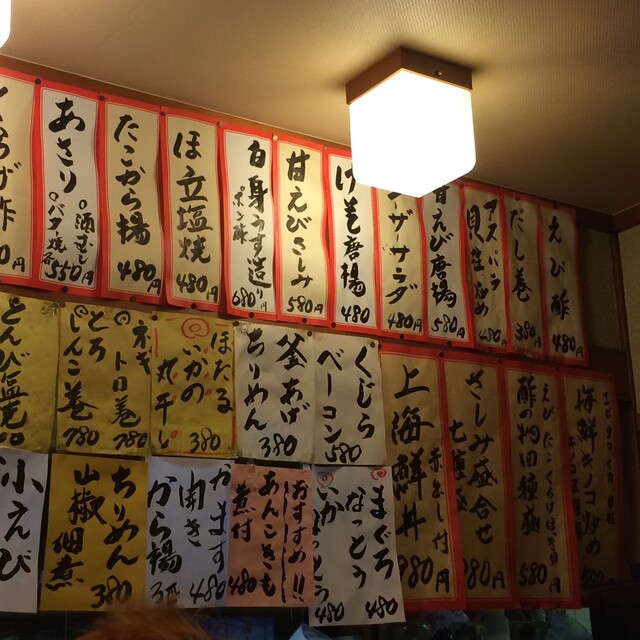 えび酢
だし巻
380円
アスパラ
480円
甘えび唐揚
580円
サラダ
480円
げそ唐揚
480
甘えびさしみ
580円
白身うす造り
ポン酢
680円
ほ立塩焼
480円
たこから揚
480円
あさり
酒むし
バタ焼
各550円
くじら
ベーコン
580
釜あげ
ちりめん
380
ほたる
いかの
丸干し
380
ネギトロ巻
780
とろしんこ巻
780
とんび塩焼
海鮮キノコ炒め
580
さしみ盛合せ
七種
980円
上海鮮丼
赤出し付
980円
まぐろ
なっとう
480
いか
なっとう
480
おすすめ!!
あんこきも
煮付
480
かます
開き
480
から揚
ちりめん
山椒佃煮
380
小えび